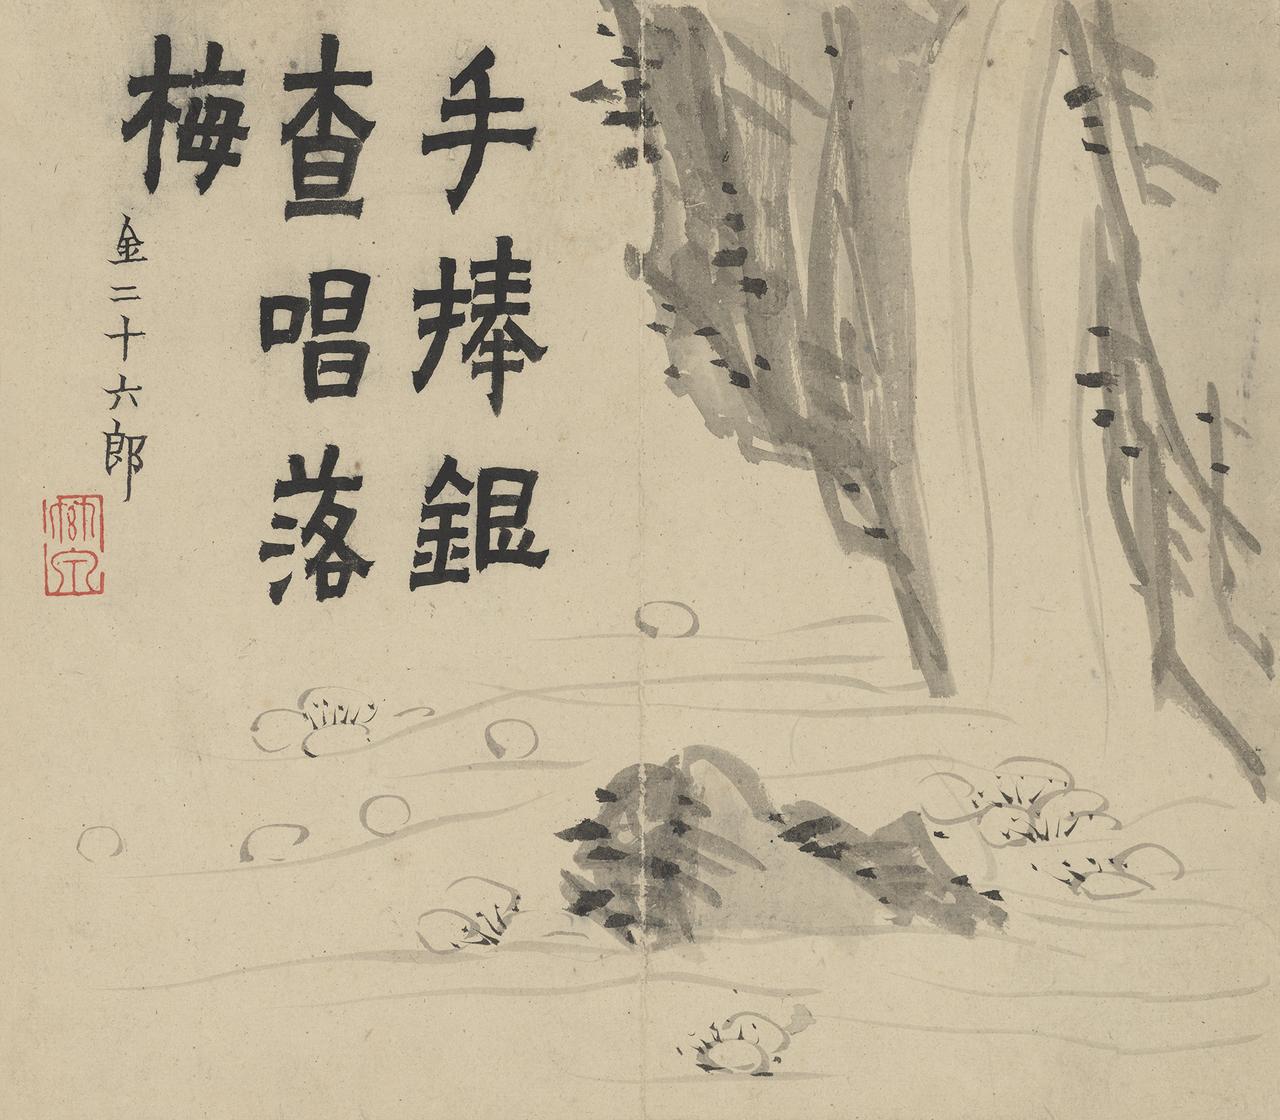 手捧銀
查唱落
梅
金二十六郎